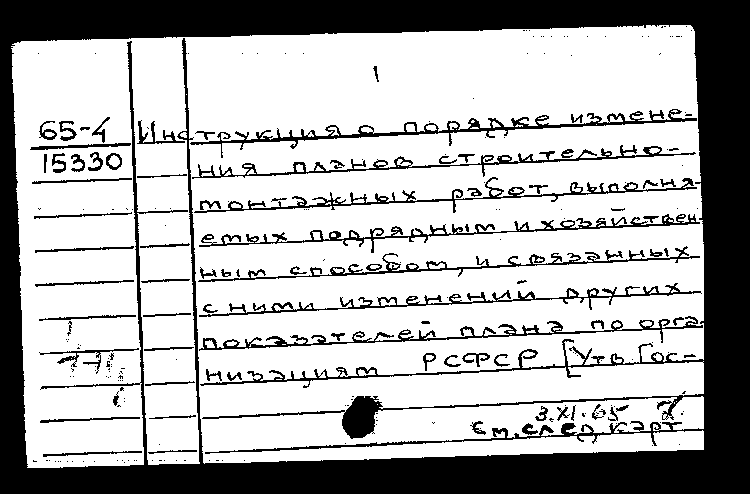 1
65-4 Инструкция о порядке измене=
15330 ния планов строительно-
монтажных работ, выполня-
емых подрядным и хозяйствен-
ным способом, и связанных
с ними изменений других
показателей плана по орга-
низациям РСФСР [Утв. Гос-
3.XI.65
См. след. карт